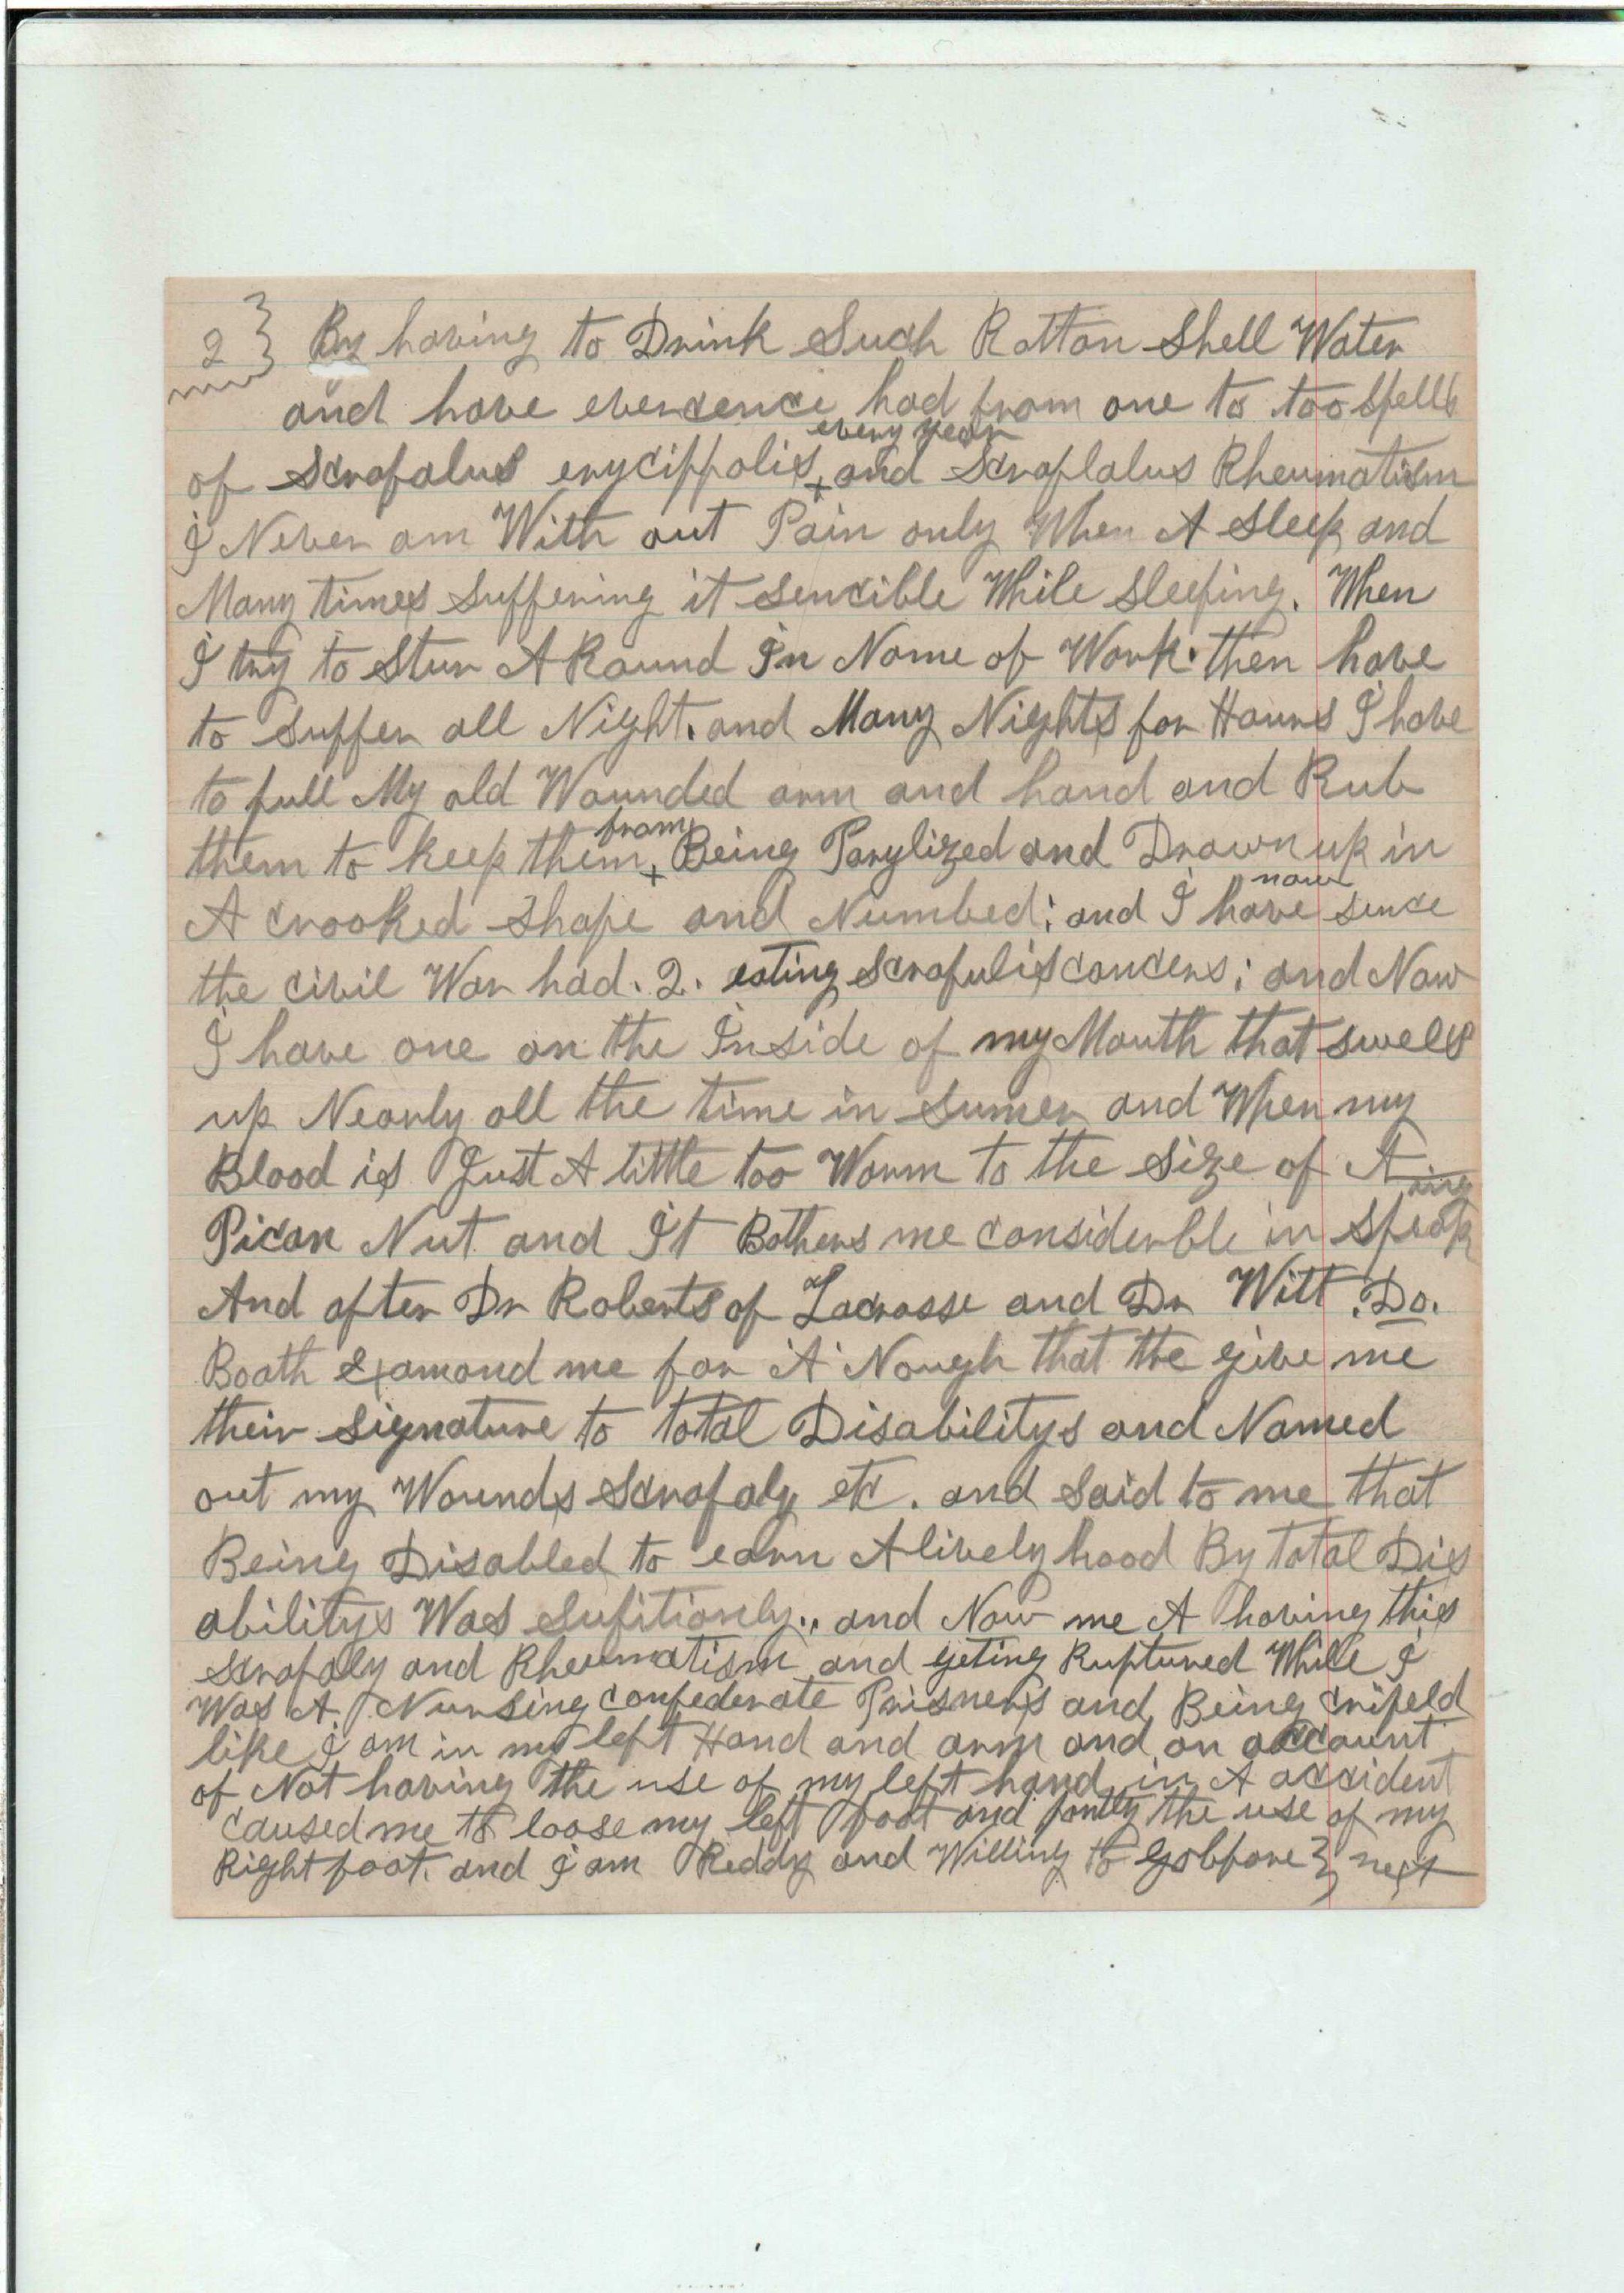 2} By having to Drink Such Rotton Shell Water
and have evercence had from one to too spells
every year
of Scrofalus erycippolis + and Scroflalus Rheumatism
I Never am With out Pain only When A Sleep and
Many times Suffering it Sencible While Sleeping. When
I try to Stur A Round In Name of Work. then have
to Suffer all Night. and Many Nights for Hours I have
to pull My old Wounded arm and hand and Rub
from
them to keep them + Being Parylized and Drawn up in
now
A crooked Shape and Numbed; and I have sence
the civil War had. 2. eating Scrofulis cancers; and Now
I have one on the Inside of my Mouth that swells
up Nearly all the time in Sumer and When my
Blood is Just A little too Warm to the Size of A
ing
Pican Nut and It Bothers me considerble in Speak
And after Dr Roberts of Lacrosse and Dr Witt. Do.
Boath Examond me for A Nough that the give me
their Signature to total Disabilitys and Named
out my Wounds Scrofaly etc. and Said to me that
Being Disabled to earn A livelyhood By total Dis
abilitys Was Sufitionly.. and Now me A having this
Scrofaly and Rheumatism and geting Ruptured While I
Was A Nursing confederate Prisners and Being cripeld
like I am in my left Hand and arm and on account
of Not having the use of my left hand in A accident
caused me to loose my left foot and partly the use of my
Right foot. and I am Reddy and Willing to go bfore} next